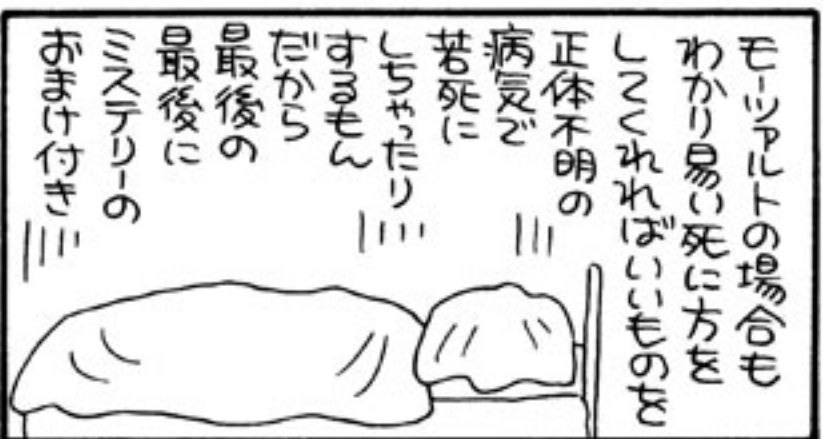 モーツァルトの場合も
わかり易い死に方を
してくれればいいものを
正体不明の
病気で
若死に
しちゃったり
するもん
だから
最後の
最後に
ミステリーの
おまけ付き